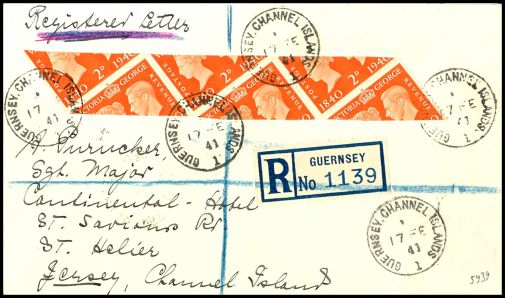 Registered Letter
1940 2D 1940 2D 1940 2D 1940
POSTAGE VICTORIA GEORGE REVENUE
1840 VICTORIA GEORGE REVENUE 1840
GUERNSEY, CHANNEL ISLANDS
17 FE
41
1
GUERNSEY, CHANNEL ISLANDS
17 FE
41
1
GUERNSEY, CHANNEL ISLANDS
17 FE
41
1
GUERNSEY, CHANNEL ISLANDS
17 FE
41
1
R GUERNSEY
No 1139
Sgt. Major
Continental - Hotel
St. Saviours Rd
St. Helier
Jersey, Channel Islands
GUERNSEY, CHANNEL ISLANDS
17 FE
41
1
5939